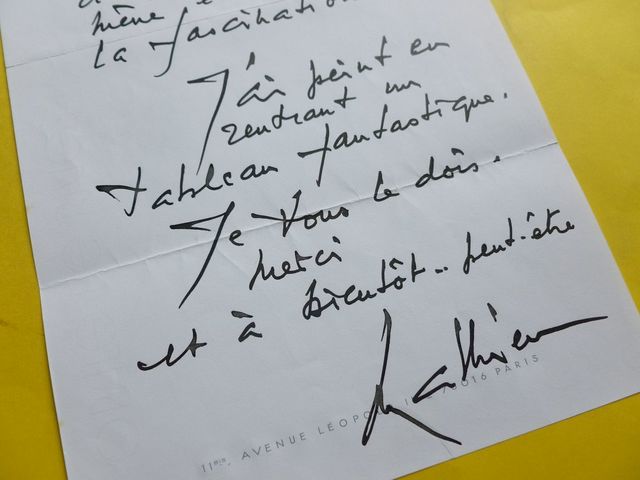 même
la fascination
J'ai peint en
rentrant un
tableau fantastique.
Je vous le dois.
Merci
et à bientôt.. peut-être
Mathieu
11bis, AVENUE LÉOPO 75016 PARIS